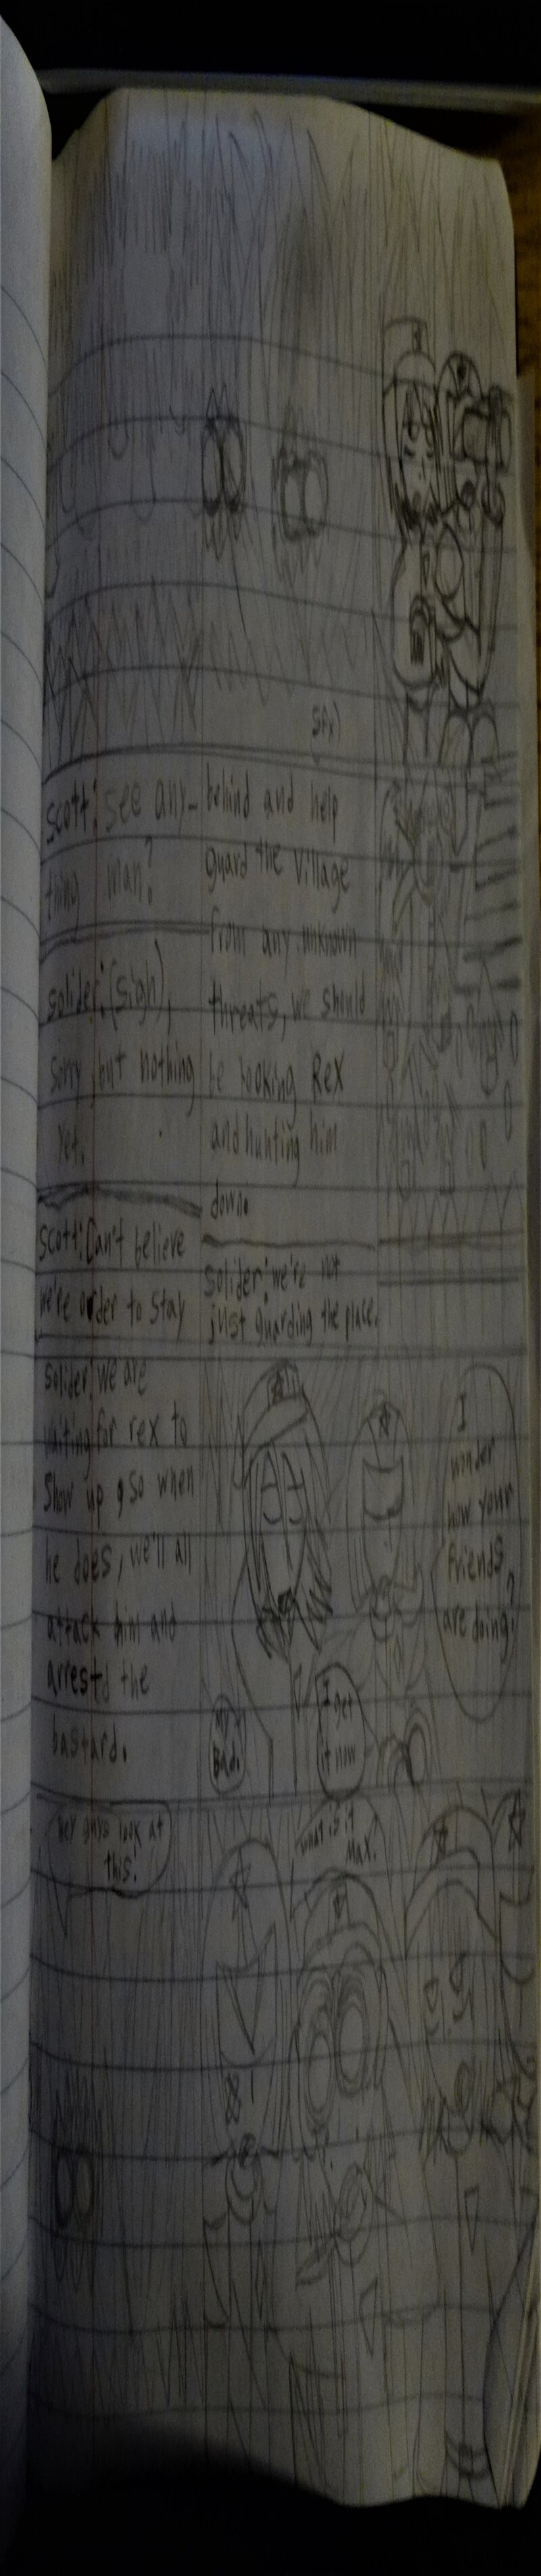 SPX)
scott: see any-
thing man?
solider: (sigh),
Sorry but nothing
yet.
Scott: Can't believe
we're order to stay
behind and help
guard the village
from any unknown
threats, we should
be looking Rex
and hunting him
down.
solider: we're not
just guarding the place.
solider: we are
waiting for rex to
show up, so when
he does, we'll all
attack him and
arrestd the
bastard.
My
Bad.
I get
it now
I
wonder
how your
friends
are doing?
hey guys look at
this!
what is it
Max?